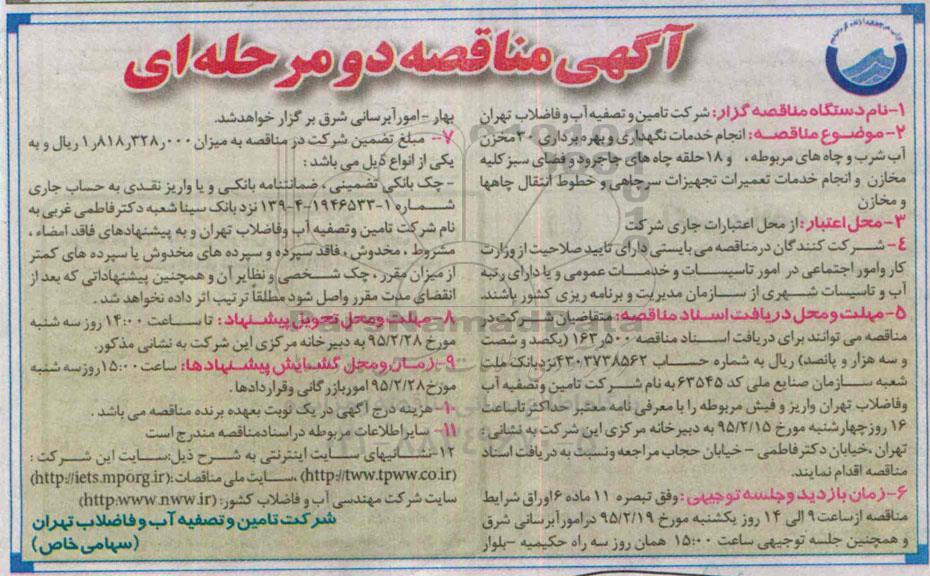 آگهی مناقصه دو مرحله ای
۱-نام دستگاه مناقصه گزار: شرکت تامین و تصفیه آب و فاضلاب تهران
۲-موضوع مناقصه: انجام خدمات نگهداری و بهره برداری ۳۰ مخزن
آب شرب و چاه های مربوطه، و ۱۸ حلقه چاه های جاجرود و فضای سبز کلیه
مخازن و انجام خدمات تعمیرات تجهیزات سرچاهی و خطوط انتقال چاهها
و مخازن
۳-محل اعتبار: از محل اعتبارات جاری شرکت
۴- شرکت کنندگان در مناقصه می بایستی دارای تایید صلاحیت از وزارت
کار وامور اجتماعی در امور تاسیسات و خدمات عمومی و یا دارای رتبه
آب و تاسیسات شهری از سازمان مدیریت و برنامه ریزی کشور باشند.
۵-مهلت و محل دریافت اسناد مناقصه: متقاضیان شرکت در
مناقصه می توانند برای دریافت اسناد مناقصه ۱۶۳٫۵۰۰ (یکصد و شصت
و سه هزار و پانصد) ریال به شماره حساب ۴۳۰۳۷۳۸۵۶۲ نزد بانک ملت
شعبه سازمان صنایع ملی کد ۶۳۵۴۵ به نام شرکت تامین وتصفیه آب
وفاضلاب تهران واریز و فیش مربوطه را با معرفی نامه معتبر حداکثر تا ساعت
۱۶ روز چهارشنبه مورخ ۹۵/۲/۱۵ به دبیرخانه مرکزی این شرکت به نشانی
تهران ،خیابان دکتر فاطمی – خیابان حجاب مراجعه ونسبت به دریافت اسناد
مناقصه اقدام نمایند.
۶-زمان بازدید وجلسه توجیهی: وفق تبصره ۱۱ ماده ۶ اوراق شرایط
مناقصه از ساعت ۹ الی ۱۴ روز یکشنبه مورخ ۹۵/۲/۱۹ درامور آبرسانی شرق
و همچنین جلسه توجیهی ساعت ۱۵:۰۰ همان روز سه راه حکیمیه –بلوار
بهار -امور آبرسانی شرق بر گزار خواهد شد.
۷- مبلغ تضمین شرکت در مناقصه به میزان ۱٫۸۱۸٫۳۲۸٫۰۰۰ ریال و به
یکی از انواع ذیل می باشد :
- چک بانکی تضمینی ، ضمانتنامه بانکی و یا واریز نقدی به حساب جاری
شماره ۱-۱۹۴۶۵۳۳-۴-۱۳۹ نزد بانک سینا شعبه دکتر فاطمی غربی به
نام شرکت تامین وتصفیه آب وفاضلاب تهران و به پیشنهادهای فاقد امضاء ،
مشروط ، مخدوش ، فاقد سپرده و سپرده های مخدوش یا سپرده های کمتر
از میزان مقرر ، چک شخصی و نظایر آن و همچنین پیشنهاداتی که بعد از
انقضای مدت مقرر واصل شود مطلقاً ترتیب اثر داده نخواهد شد .
۸- مهلت ومحل تحویل پیشنهاد: تا ساعت ۱۴:۰۰ روز سه شنبه
مورخ ۹۵/۲/۲۸ به دبیر خانه مرکزی این شرکت به نشانی مذکور.
۹-زمان ومحل گشایش پیشنهادها: ساعت ۱۵:۰۰روز سه شنبه
مورخ ۹۵/۲/۲۸ امور بازرگانی وقراردادها.
۱۰- هزینه درج آگهی در یک نوبت بعهده برنده مناقصه می باشد .
۱۱- سایر اطلاعات مربوطه در اسناد مناقصه مندرج است
۱۲-نشانیهای سایت اینترنتی به شرح ذیل:سایت این شرکت :
(http://tww.tpww.co.ir) ،سایت ملی مناقصات: (http://iets.mporg.ir)
سایت شرکت مهندسی آب و فاضلاب کشور: (http:www.nww.ir)
شرکت تامین و تصفیه آب و فاضلاب تهران
(سهامی خاص)
ParsNamadData